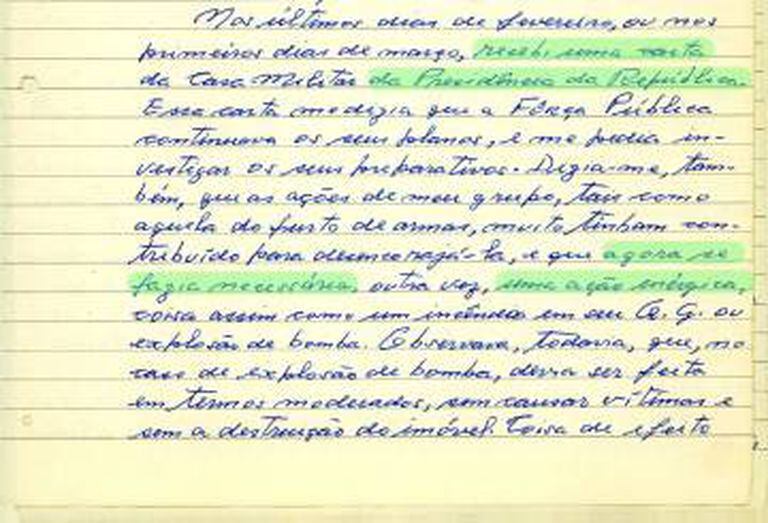 Nos últimos dias de fevereiro, ou nos
primeiros dias de março, recebi uma carta
da Casa Militar da Presidência da República.
Essa carta me dizia que a Fôrça Pública
continuava os seus planos, e me pedia in-
vestigar os seus preparativos. Dizia-me, tam-
bém, que as ações de meu grupo, tais como
aquela do furto de armas, muito tinham con-
tribuído para desencorajá-la, e que agora se
fazia necessária, outra vez, uma ação enérgica,
coisa assim como um incêndio em seu Q.G. ou
explosão de bomba. Observava, todavia, que, no
caso de explosão de bomba, devia ser feita
em termos moderados, sem causar vítimas e
sem a destruição do imóvel. Coisa de efeito